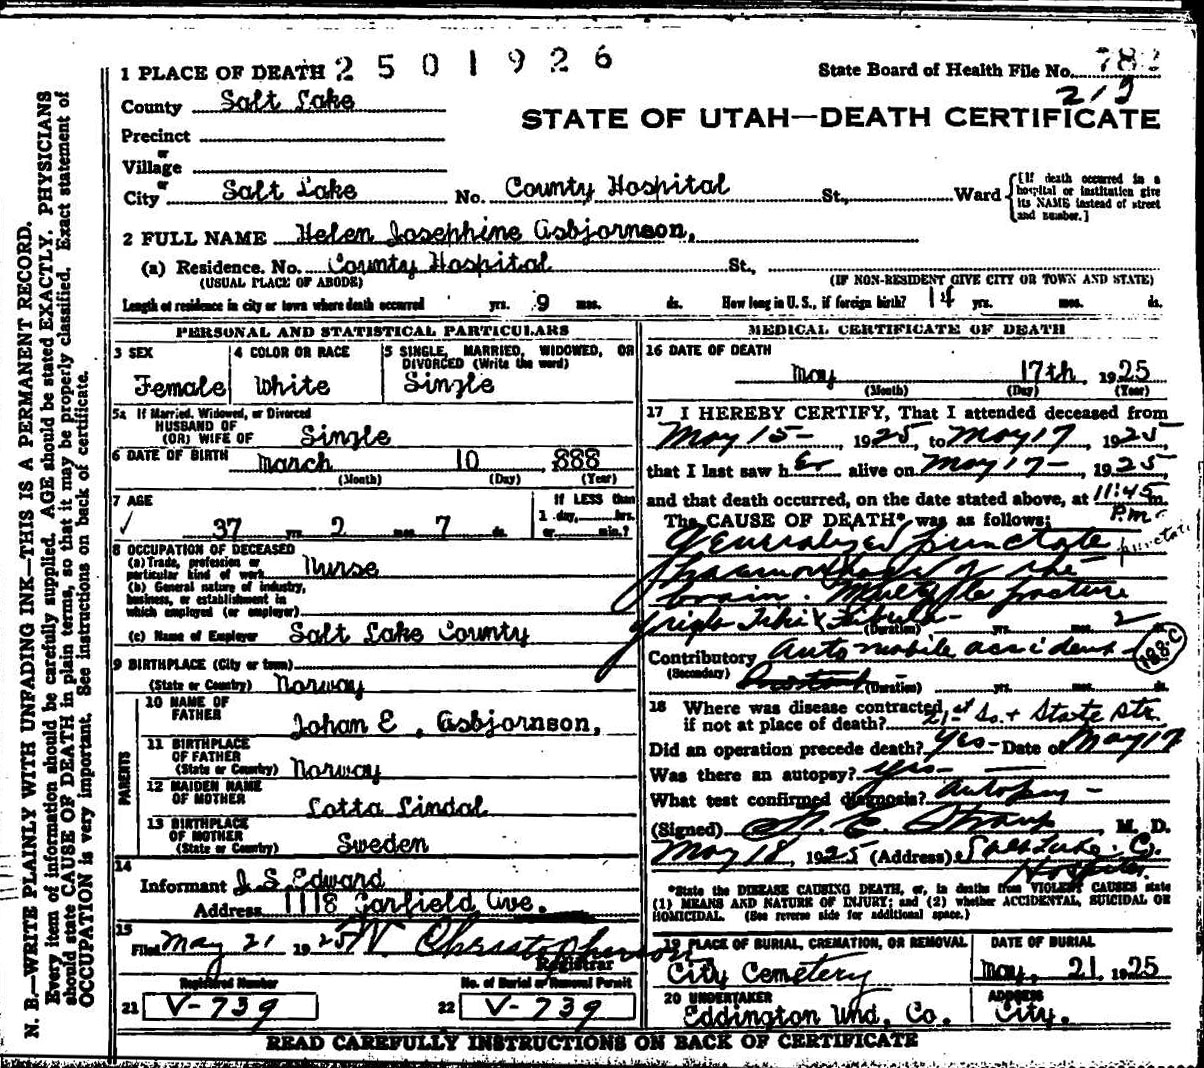 1 PLACE OF DEATH 2 5 0 1 9 2 6
State Board of Health File No. 782
219
County Salt Lake
STATE OF UTAH—DEATH CERTIFICATE
Precinct
or
Village
or
City Salt Lake No. County Hospital St., Ward
[If death occurred in a hospital or institution give its NAME instead of street and number.]
2 FULL NAME Helen Josephine Asbjornson,
(a) Residence. No. County Hospital St.,
(USUAL PLACE OF ABODE) (IF NON-RESIDENT GIVE CITY OR TOWN AND STATE)
Length of residence in city or town where death occurred yrs. 9 mos. ds. How long in U. S., if foreign birth? 14 yrs. mos. ds.
PERSONAL AND STATISTICAL PARTICULARS
3 SEX 4 COLOR OR RACE 5 SINGLE, MARRIED, WIDOWED, OR
DIVORCED (Write the word)
Female White Single
5a If Married, Widowed, or Divorced
HUSBAND OF
(OR) WIFE OF Single
6 DATE OF BIRTH March 10 888
(Month) (Day) (Year)
7 AGE If LESS than
37 yrs. 2 mos. 7 ds. 1 day, hrs.
or min.?
8 OCCUPATION OF DECEASED
(a) Trade, profession or
particular kind of work Nurse
(b) General nature of industry,
business, or establishment in
which employed (or employer)
(c) Name of Employer Salt Lake County
9 BIRTHPLACE (City or town)
(State or Country) Norway
PARENTS
10 NAME OF
FATHER Johan E. Asbjornson,
11 BIRTHPLACE
OF FATHER
(State or Country) Norway
12 MAIDEN NAME
OF MOTHER Lotta Lindal
13 BIRTHPLACE
OF MOTHER
(State or Country) Sweden
14
Informant J. S. Edward
Address 1118 Garfield Ave.
15
Filed May 21 1925 W. Christopherson
Registrar
Registered Number No. of Burial or Removal Permit
21 V-739 22 V-739
MEDICAL CERTIFICATE OF DEATH
16 DATE OF DEATH
May 17th 1925
(Month) (Day) (Year)
17 I HEREBY CERTIFY, That I attended deceased from
May 15-, 1925, to May 17, 1925
that I last saw her alive on May 17-, 1925
and that death occurred, on the date stated above, at 11:45 m.
P.m.
The CAUSE OF DEATH* was as follows:
Generalized punctate punctate
haemorrhage of the
brain. Multiple fracture
right Tibia & Fibula-
(Duration) yrs. mos. 2 ds.
Contributory Automobile accident- 188-c
(Secondary) (Duration) yrs. mos. ds.
18 Where was disease contracted,
if not at place of death? 21st So. + State Str.
Did an operation precede death? Yes- Date of May 17
Was there an autopsy? yes-
What test confirmed diagnosis? autopsy-
(Signed) E. M. D.
May 18, 1925 (Address) Salt Lake Co.
Hospital
*State the DISEASE CAUSING DEATH, or, in deaths from VIOLENT CAUSES state
(1) MEANS AND NATURE OF INJURY; and (2) whether ACCIDENTAL, SUICIDAL OR
HOMICIDAL. (See reverse side for additional space.)
19 PLACE OF BURIAL, CREMATION, OR REMOVAL DATE OF BURIAL
City Cemetery May, 21, 1925
20 UNDERTAKER ADDRESS
Eddington Und. Co. City.
READ CAREFULLY INSTRUCTIONS ON BACK OF CERTIFICATE
N. B.—WRITE PLAINLY WITH UNFADING INK—THIS IS A PERMANENT RECORD.
Every item of information should be carefully supplied. AGE should be stated EXACTLY. PHYSICIANS
should state CAUSE OF DEATH in plain terms, so that it may be properly classified. Exact statement of
OCCUPATION is very important. See instructions on back of certificate.